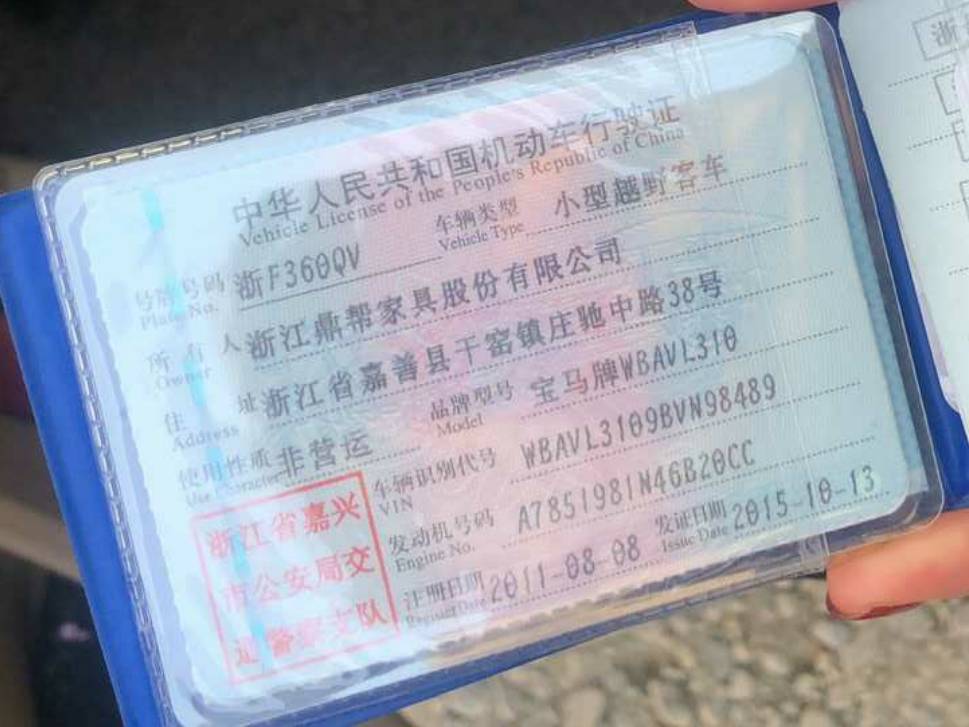 中华人民共和国机动车行驶证
Vehicle License of the People's Republic of China
号牌号码 浙F360QV 车辆类型 小型越野客车
Plate No. Vehicle Type
所有人 浙江鼎帮家具股份有限公司
Owner
住址 浙江省嘉善县干窑镇庄驰中路38号
Address
使用性质 非营运 品牌型号 宝马牌WBAVL310
Use Character Model
车辆识别代号 WBAVL3109BVN98489
VIN
发动机号码 A7851981N46B20CC
Engine No.
注册日期 2011-08-08 发证日期 2015-10-13
Register Date Issue Date
浙江省嘉兴
市公安局交
通警察支队